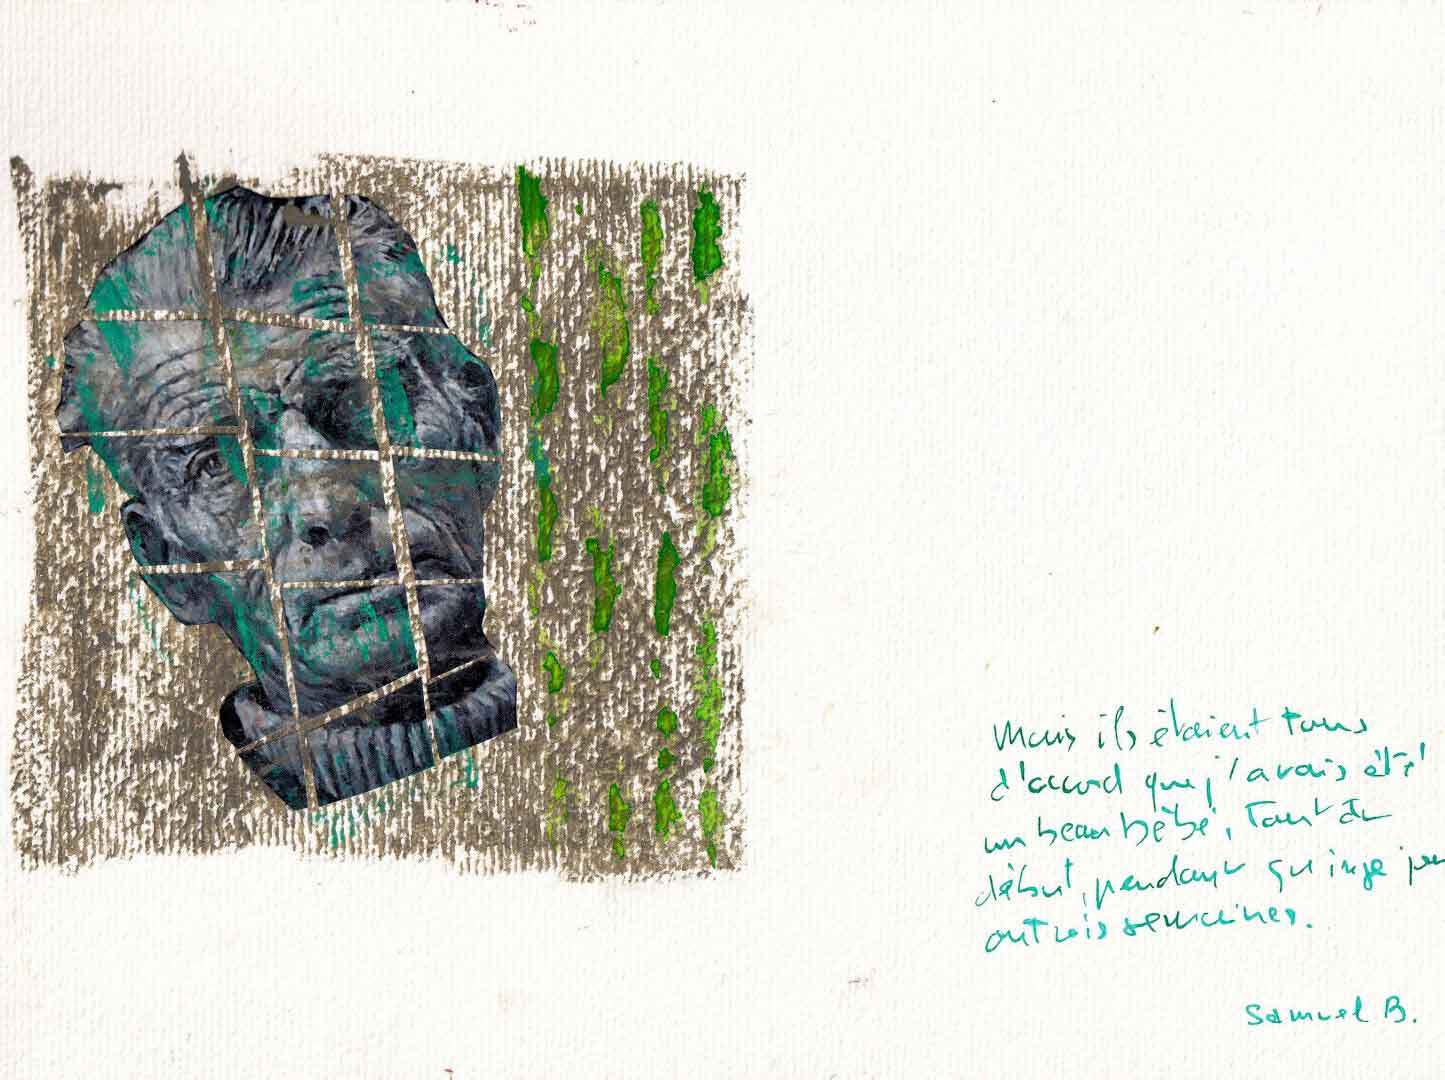 Mais ils étaient tous
d'accord que j'avais été
un beau bébé, tout du
début, pendant quinze jou
ou trois semaines.
Samuel B.